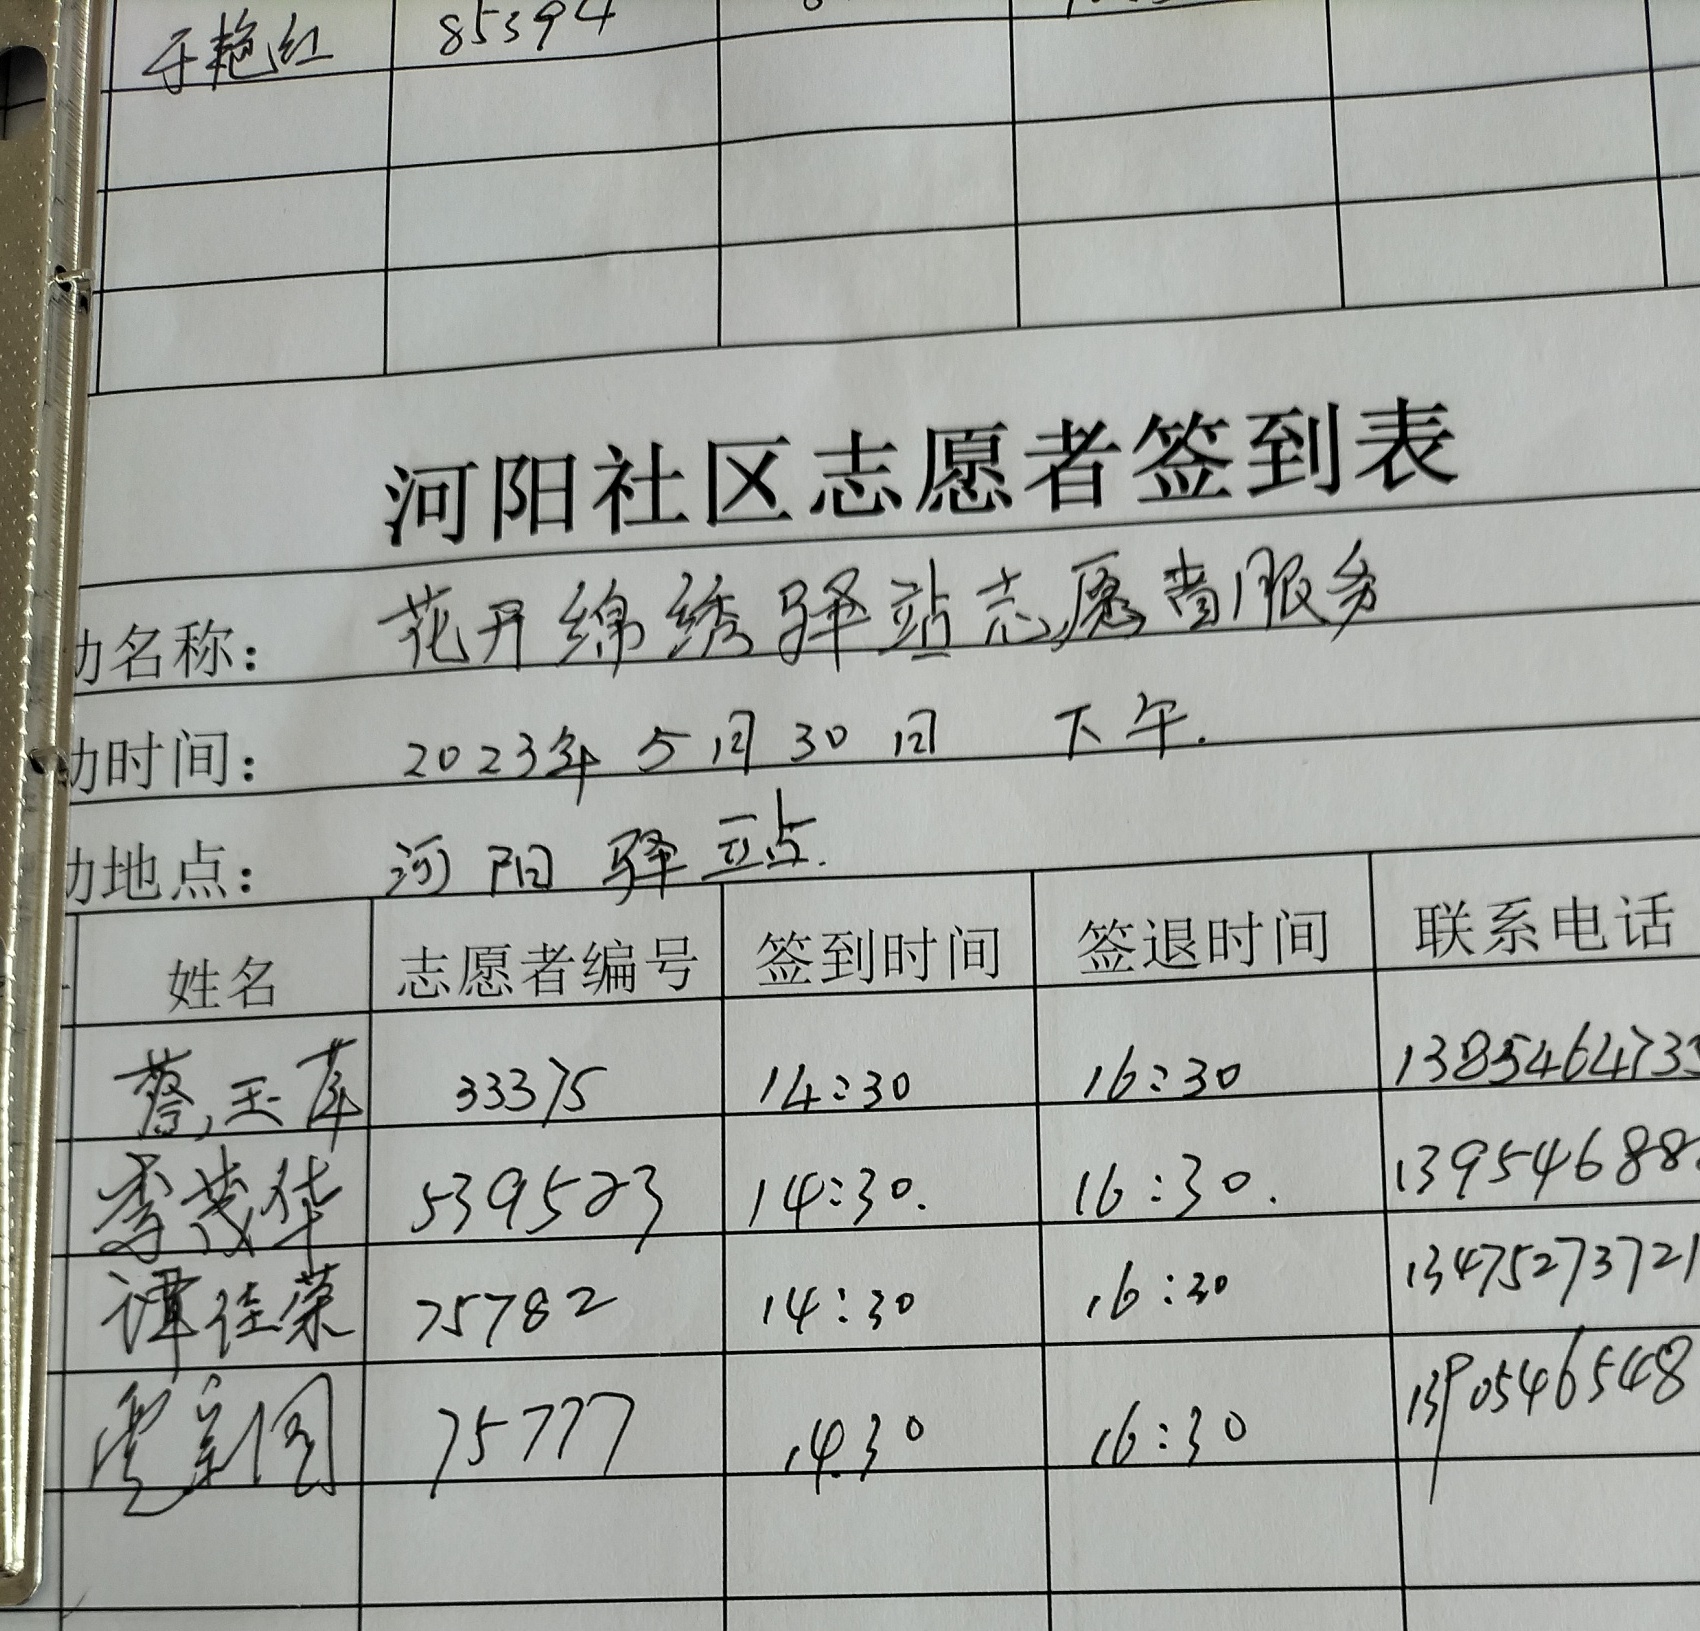 于艳红 85394
河阳社区志愿者签到表
动名称: 花开绵绣驿站志愿者服务
动时间: 2023年5月30日 下午.
动地点: 河阳驿站.
姓名 志愿者编号 签到时间 签退时间 联系电话
蔡玉萍 33375 14:30 16:30 1385464733
李茂华 539523 14:30. 16:30. 13954688
谭佳荣 75782 14:30 16:30 13475273721
75777 14.30 16:30 1390546548